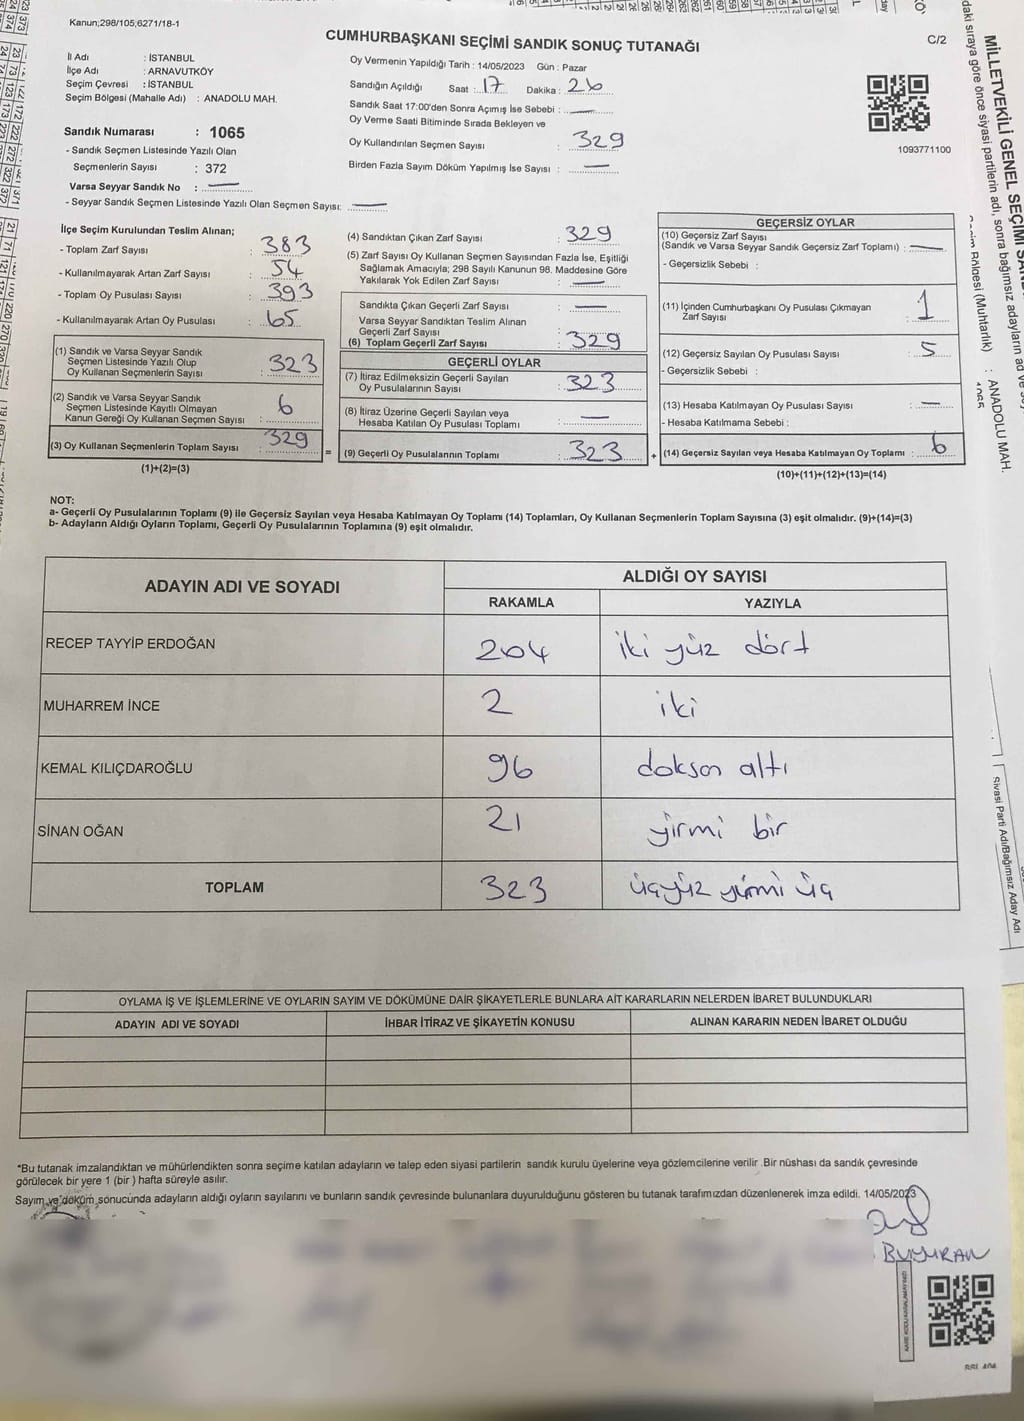 Kanun;298/105;6271/18-1
CUMHURBAŞKANI SEÇİMİ SANDIK SONUÇ TUTANAĞI
C/2
İl Adı : İSTANBUL
İlçe Adı : ARNAVUTKÖY
Seçim Çevresi : İSTANBUL
Seçim Bölgesi (Mahalle Adı) : ANADOLU MAH.
Sandık Numarası : 1065
- Sandık Seçmen Listesinde Yazılı Olan
Seçmenlerin Sayısı : 372
Varsa Seyyar Sandık No : —
- Seyyar Sandık Seçmen Listesinde Yazılı Olan Seçmen Sayısı: —
Oy Vermenin Yapıldığı Tarih : 14/05/2023 Gün : Pazar
Sandığın Açıldığı Saat : 17 Dakika : 26
Sandık Saat 17:00'den Sonra Açımış İse Sebebi : —
Oy Verme Saati Bitiminde Sırada Bekleyen ve
Oy Kullandırılan Seçmen Sayısı : 329
Birden Fazla Sayım Döküm Yapılmış İse Sayısı : —
1093771100
İlçe Seçim Kurulundan Teslim Alınan;
- Toplam Zarf Sayısı : 383
- Kullanılmayarak Artan Zarf Sayısı : 54
- Toplam Oy Pusulası Sayısı : 393
- Kullanılmayarak Artan Oy Pusulası : 65
(1) Sandık ve Varsa Seyyar Sandık
Seçmen Listesinde Yazılı Olup
Oy Kullanan Seçmenlerin Sayısı : 323
(2) Sandık ve Varsa Seyyar Sandık
Seçmen Listesinde Kayıtlı Olmayan
Kanun Gereği Oy Kullanan Seçmen Sayısı : 6
(3) Oy Kullanan Seçmenlerin Toplam Sayısı : 329
(1)+(2)=(3)
=
(4) Sandıktan Çıkan Zarf Sayısı : 329
(5) Zarf Sayısı Oy Kullanan Seçmen Sayısından Fazla İse, Eşitliği
Sağlamak Amacıyla; 298 Sayılı Kanunun 98. Maddesine Göre
Yakılarak Yok Edilen Zarf Sayısı : —
Sandıkta Çıkan Geçerli Zarf Sayısı : —
Varsa Seyyar Sandıktan Teslim Alınan
Geçerli Zarf Sayısı : —
(6) Toplam Geçerli Zarf Sayısı : 329
GEÇERLİ OYLAR
(7) İtiraz Edilmeksizin Geçerli Sayılan
Oy Pusulalarının Sayısı : 323
(8) İtiraz Üzerine Geçerli Sayılan veya
Hesaba Katılan Oy Pusulası Toplamı : —
(9) Geçerli Oy Pusulalarının Toplamı : 323
+
GEÇERSİZ OYLAR
(10) Geçersiz Zarf Sayısı
(Sandık ve Varsa Seyyar Sandık Geçersiz Zarf Toplamı) : —
- Geçersizlik Sebebi :
(11) İçinden Cumhurbaşkanı Oy Pusulası Çıkmayan
Zarf Sayısı : 1
(12) Geçersiz Sayılan Oy Pusulası Sayısı : 5
- Geçersizlik Sebebi :
(13) Hesaba Katılmayan Oy Pusulası Sayısı : —
- Hesaba Katılmama Sebebi :
(14) Geçersiz Sayılan veya Hesaba Katılmayan Oy Toplamı : 6
(10)+(11)+(12)+(13)=(14)
NOT:
a- Geçerli Oy Pusulalarının Toplamı (9) ile Geçersiz Sayılan veya Hesaba Katılmayan Oy Toplamı (14) Toplamları, Oy Kullanan Seçmenlerin Toplam Sayısına (3) eşit olmalıdır. (9)+(14)=(3)
b- Adayların Aldığı Oyların Toplamı, Geçerli Oy Pusulalarının Toplamına (9) eşit olmalıdır.
ADAYIN ADI VE SOYADI
ALDIĞI OY SAYISI
RAKAMLA YAZIYLA
RECEP TAYYİP ERDOĞAN 204 iki yüz dört
MUHARREM İNCE 2 iki
KEMAL KILIÇDAROĞLU 96 doksan altı
SİNAN OĞAN 21 yirmi bir
TOPLAM 323 üçyüz yirmi üç
OYLAMA İŞ VE İŞLEMLERİNE VE OYLARIN SAYIM VE DÖKÜMÜNE DAİR ŞİKAYETLERLE BUNLARA AİT KARARLARIN NELERDEN İBARET BULUNDUKLARI
ADAYIN ADI VE SOYADI İHBAR İTİRAZ VE ŞİKAYETİN KONUSU ALINAN KARARIN NEDEN İBARET OLDUĞU
*Bu tutanak imzalandıktan ve mühürlendikten sonra seçime katılan adayların ve talep eden siyasi partilerin sandık kurulu üyelerine veya gözlemcilerine verilir .Bir nüshası da sandık çevresinde
görülecek bir yere 1 (bir ) hafta süreyle asılır.
Sayım ve döküm sonucunda adayların aldığı oyların sayılarını ve bunların sandık çevresinde bulunanlara duyurulduğunu gösteren bu tutanak tarafımızdan düzenlenerek imza edildi. 14/05/2023
BUYURAN
daki sıraya göre önce siyasi partilerin adı, sonra bağımsız adayların ad ve
(Muhtarlık) : ANADOLU MAH.
Sivasi Parti Adı/Bağımsız Aday Adı